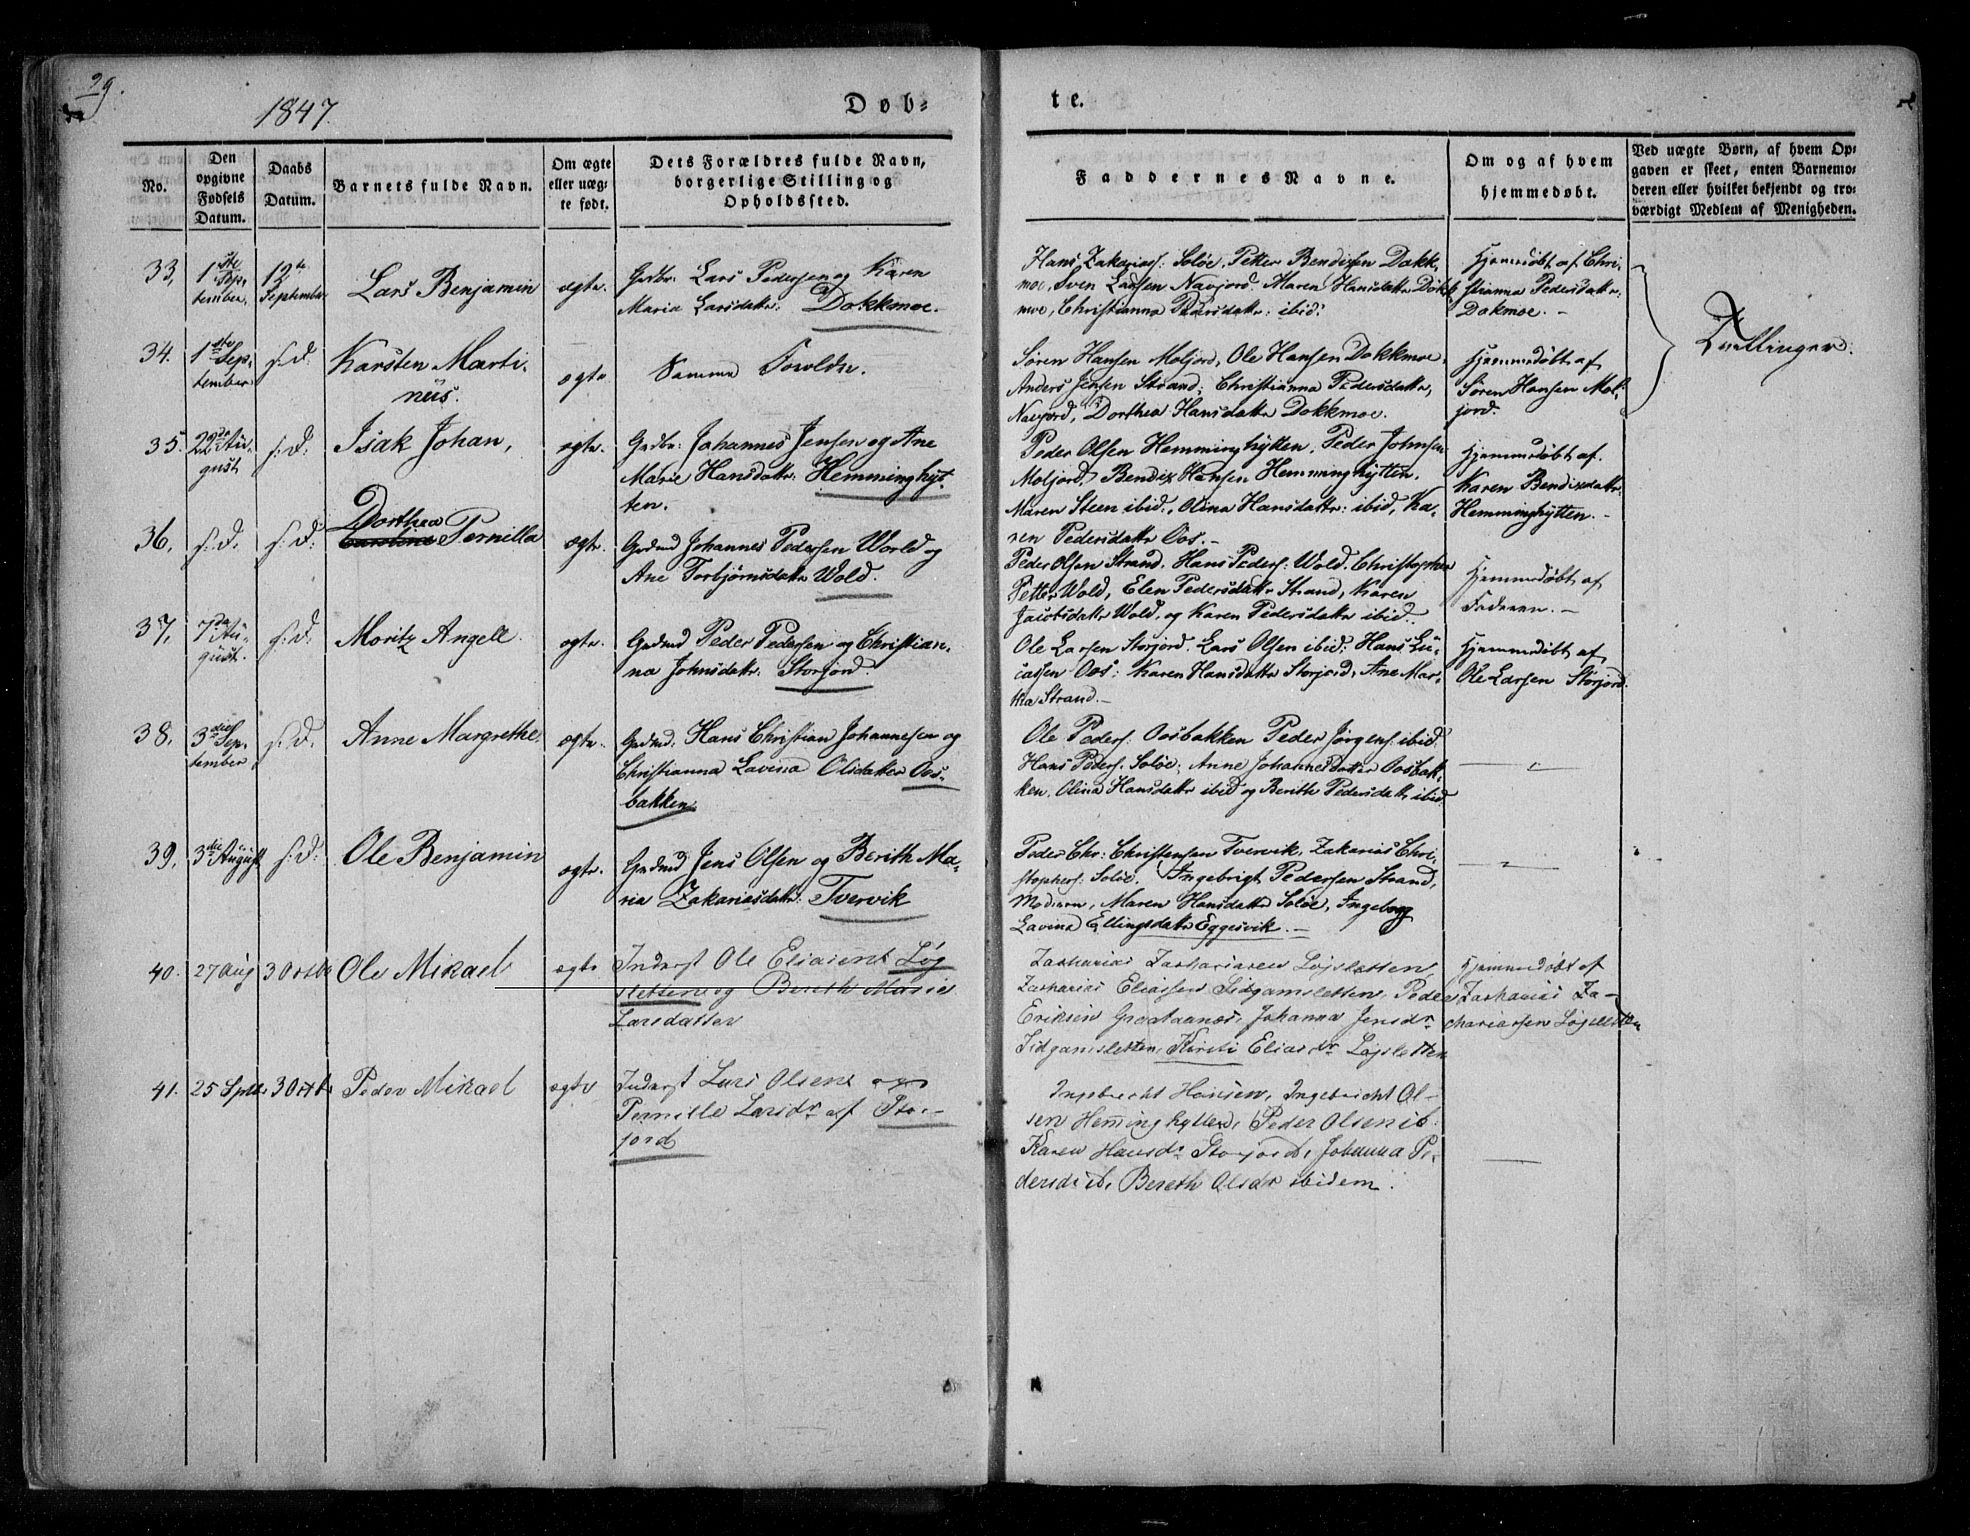 29.
1847.
Døb-
te.
No.
Den opgivne Fødsels Datum.
Daabs Datum.
Barnets fulde Navn.
Om ægte eller uægte født.
Dets Forældres fulde Navn, borgerlige Stilling og Opholdssted.
Faddernes Navne.
Om og af hvem hjemmedøbt.
Ved uægte Børn, af hvem Opgaven er skeet, enten Barnemoderen eller hvilket bekjendt og troværdigt Medlem af Menigheden.
33,
1ste September.
12te September
Lars Benjamin
ægte.
Grdbr. Lars Pedersen og Karen
Maria Larsdattr: Dokkmoe.
Hans Zakariass. Soløe, Petter Bendixen Dokk-
moe, Sven Larsen Navjord. Maren Hansdattr Dokk-
moe, Christianna Pedersdattr: ibid:
Hjemmedøbt af Chri-
stianna Pedersdattr:
Dokmoe. –
Tvillinger.
34.
1ste September
s: D:
Karsten Marti-
nus.
ægte
Samme Forældre.
Søren Hansen Moljord, Ole Hansen Dokkmoe,
Anders Jensen Strand; Christianna Pedersdattr,
Navjord, Dorthea Hansdattr Dokkmoe.
Hjemmedøbt af
Søren Hansen Mol-
jord.
35.
22de August
s: D:
Isak Johan,
ægte.
Grdbr: Johannes Jensen og Ane
Marie Hansdattr: Hemminghyt-
ten.
Peder Olsen Hemminghytten, Peder Johnsen
Moljord, Bendix Hansen Hemminghytten.
Maren Steen ibid:, Olina Hansdattr: ibid, Ka-
ren Pedersdattr Oos. –
Hjemmedøbt af
Karen Bendixdattr:
Hemminghytten. –
36,
s: D.
s: D:
Dorthea
Caroline Pernilla
ægte.
Grdmd Johannes Pedersen World og
Ane Torbjørnsdattr Wold.
Peder Olsen Strand, Hans Peders: Wold. Christopher
Petter Wold, Elen Pedersdattr Strand, Karen
Jacobsdattr Wold, og Karen Pedersdattr ibid.
Hjemmedøbt af
Faderen. –
37,
7de August.
s: D:
Moritz Angell.
ægte.
Grdmd Peder Pedersen og Christian-
na Johnsdattr: Storjord.
Ole Larsen Storjord. Lars Olsen ibid: Hans Lu-
cassen Oos: Karen Hansdattr Storjord, Ane Mar-
tha Strand. –
Hjemmedøbt af
Ole Larsen Storjord.
38,
3die September
s: D.
Anne Margrethe
ægte.
Grdmd. Hans Christian Johannesen og
Christianna Lavina Olsdatter Oos-
bakken.
Ole Peders: Oosbakken Peder Jørgens: ibid:
Hans Peders. Soløe; Anne Johannesdatter Oosbak-
ken. Olina Hansdattr ibid og Berith Pedersdattr ibid
39,
3die August
s: D:
Ole Benjamin
ægte.
Grdmd Jens Olsen og Berith Ma-
ria Zakariasdattr: Tvervik
Peder Chr: Christensen Tvervik, Zakarias Chri-
stophers: Soløe. Ingebrigt Pedersen Strand,
Moderen, Maren Hansdattr Soløe, Ingeborg
Lavina Ellingsdattr Eggesvik. –
40.
27 Aug
3 Octbr
Ole Mikael
ægte
Inderst Ole Eliasens Løg
sletten og Bereth Marie
Larsdatter
Zacharias Zachariasen Løgsletten,
Zacharias Eliassen Lidgamsletten, Peder
Eriksen Grootaanæs, Johanna Jensdr
Lidgamsletten, Kirsti Eliasdr Løgsletten
Hjemmedøbt af
Zacharias Za-
chariassen Løgsletten
41.
25 Sptbr
3 Octbr
Peder Mikael
ægte
Inderst Lars Olsens og
Pernille Larsdr af Stor-
jord
Ingebrecht Hansen, Ingebricht Ol-
sen Hemminghytten, Peder Olsen ib.
Karen Hansdr Storjord, Johanna Pe-
dersd: ib, Bereth Olsdr ibidem.